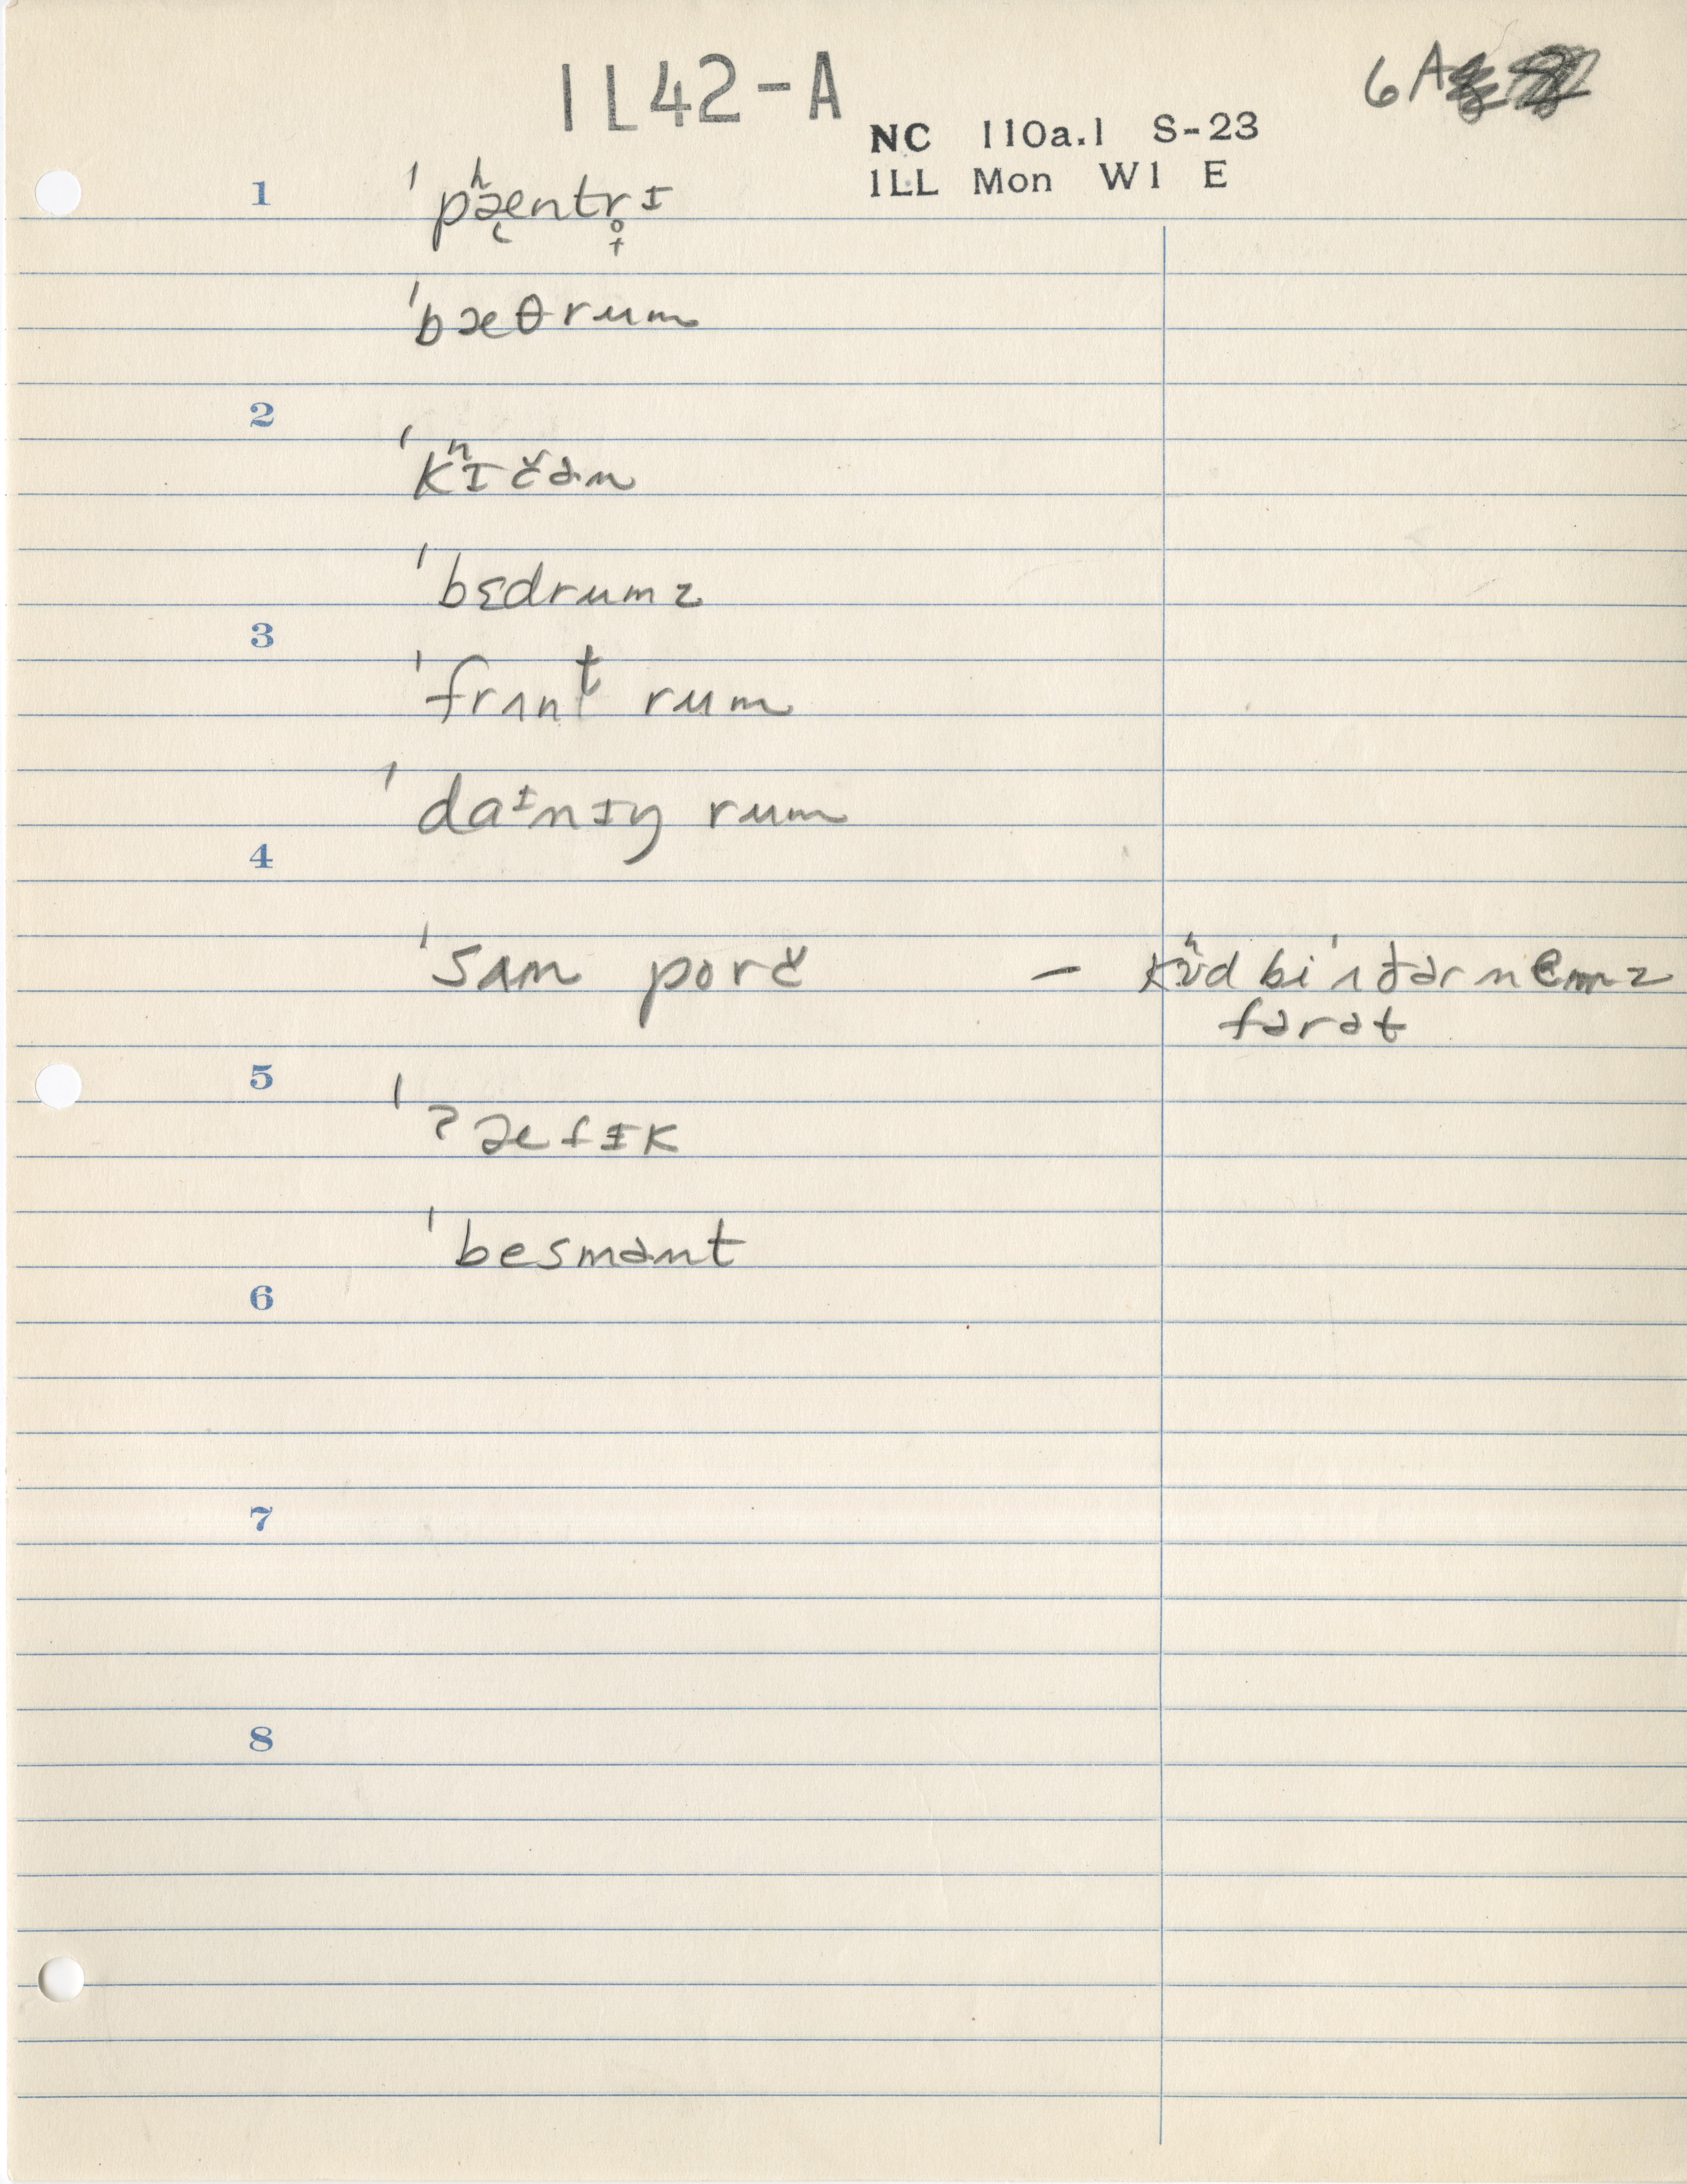 1L42-A
6A
NC 110a.1 S-23
1LL Mon W1 E
1 ˈpʰæ̜ntr̥ɪ
ˈbæθrum
2
ˈkʰɪčən
ˈbɛdrumz
3
ˈfrʌnᵗ rum
ˈdaᶦnɪŋ rum
4
ˈsʌm porč – kʰʊd bi ˈʌðər nemz
fərət
5
ˈʔæfɪk
ˈbesmənt
6
7
8